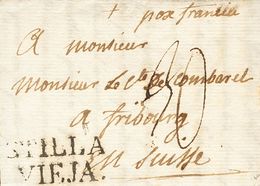 + pox francia
A Monsieur
Monsieur Le Cte de Combarel
30
a fribourg
STILLA
VIEJA.
En Suisse